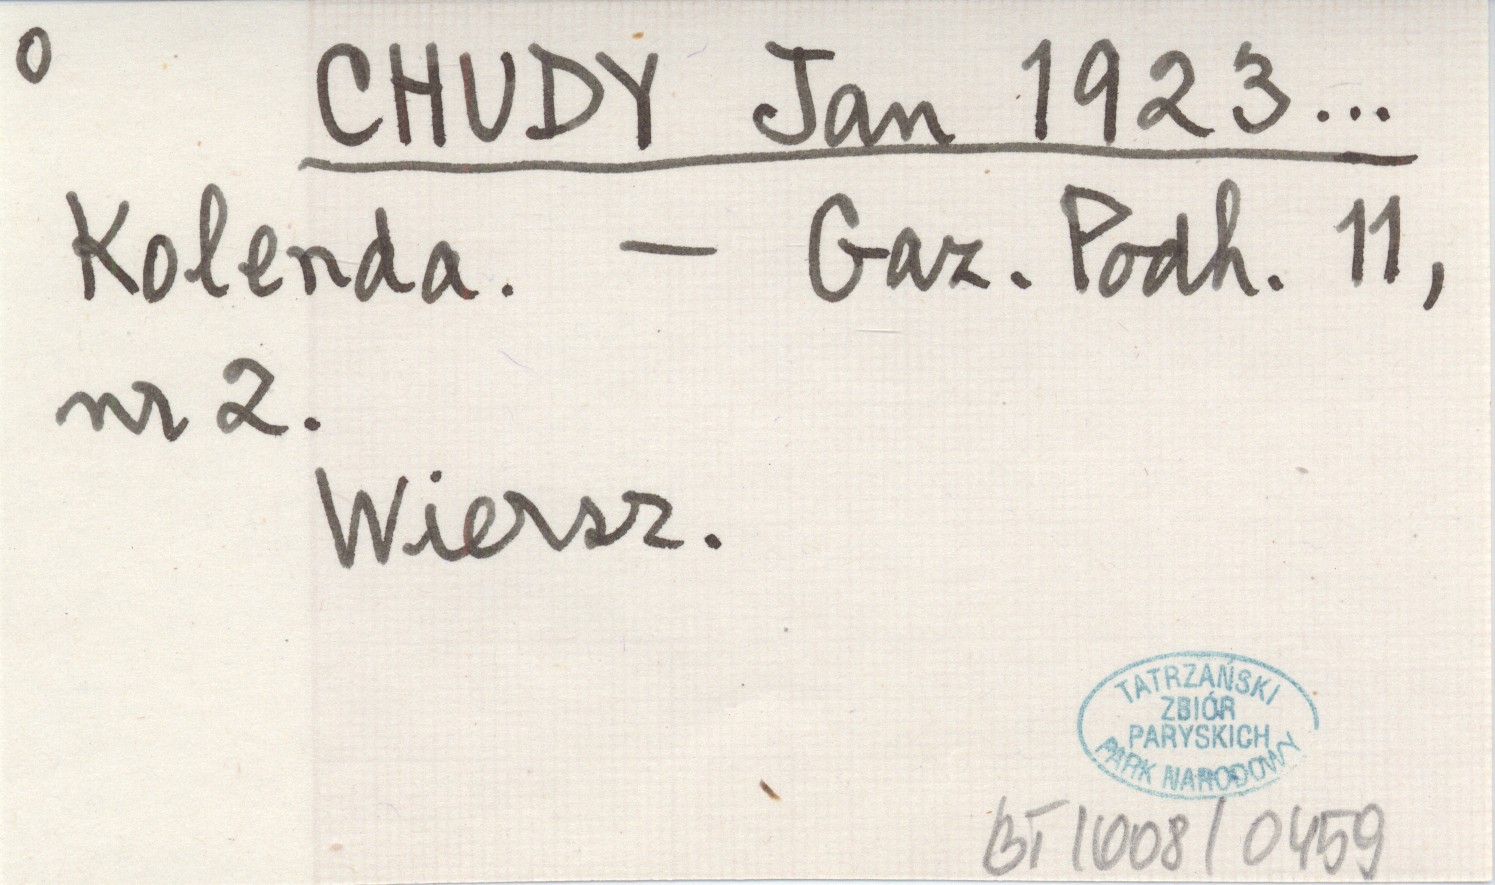 o
CHUDY Jan 1923...
Kolenda. — Gaz. Podh. 11,
nr 2.
Wiersz.
TATRZAŃSKI
ZBIÓR
PARYSKICH
PARK NARODOWY
BT/008/0459